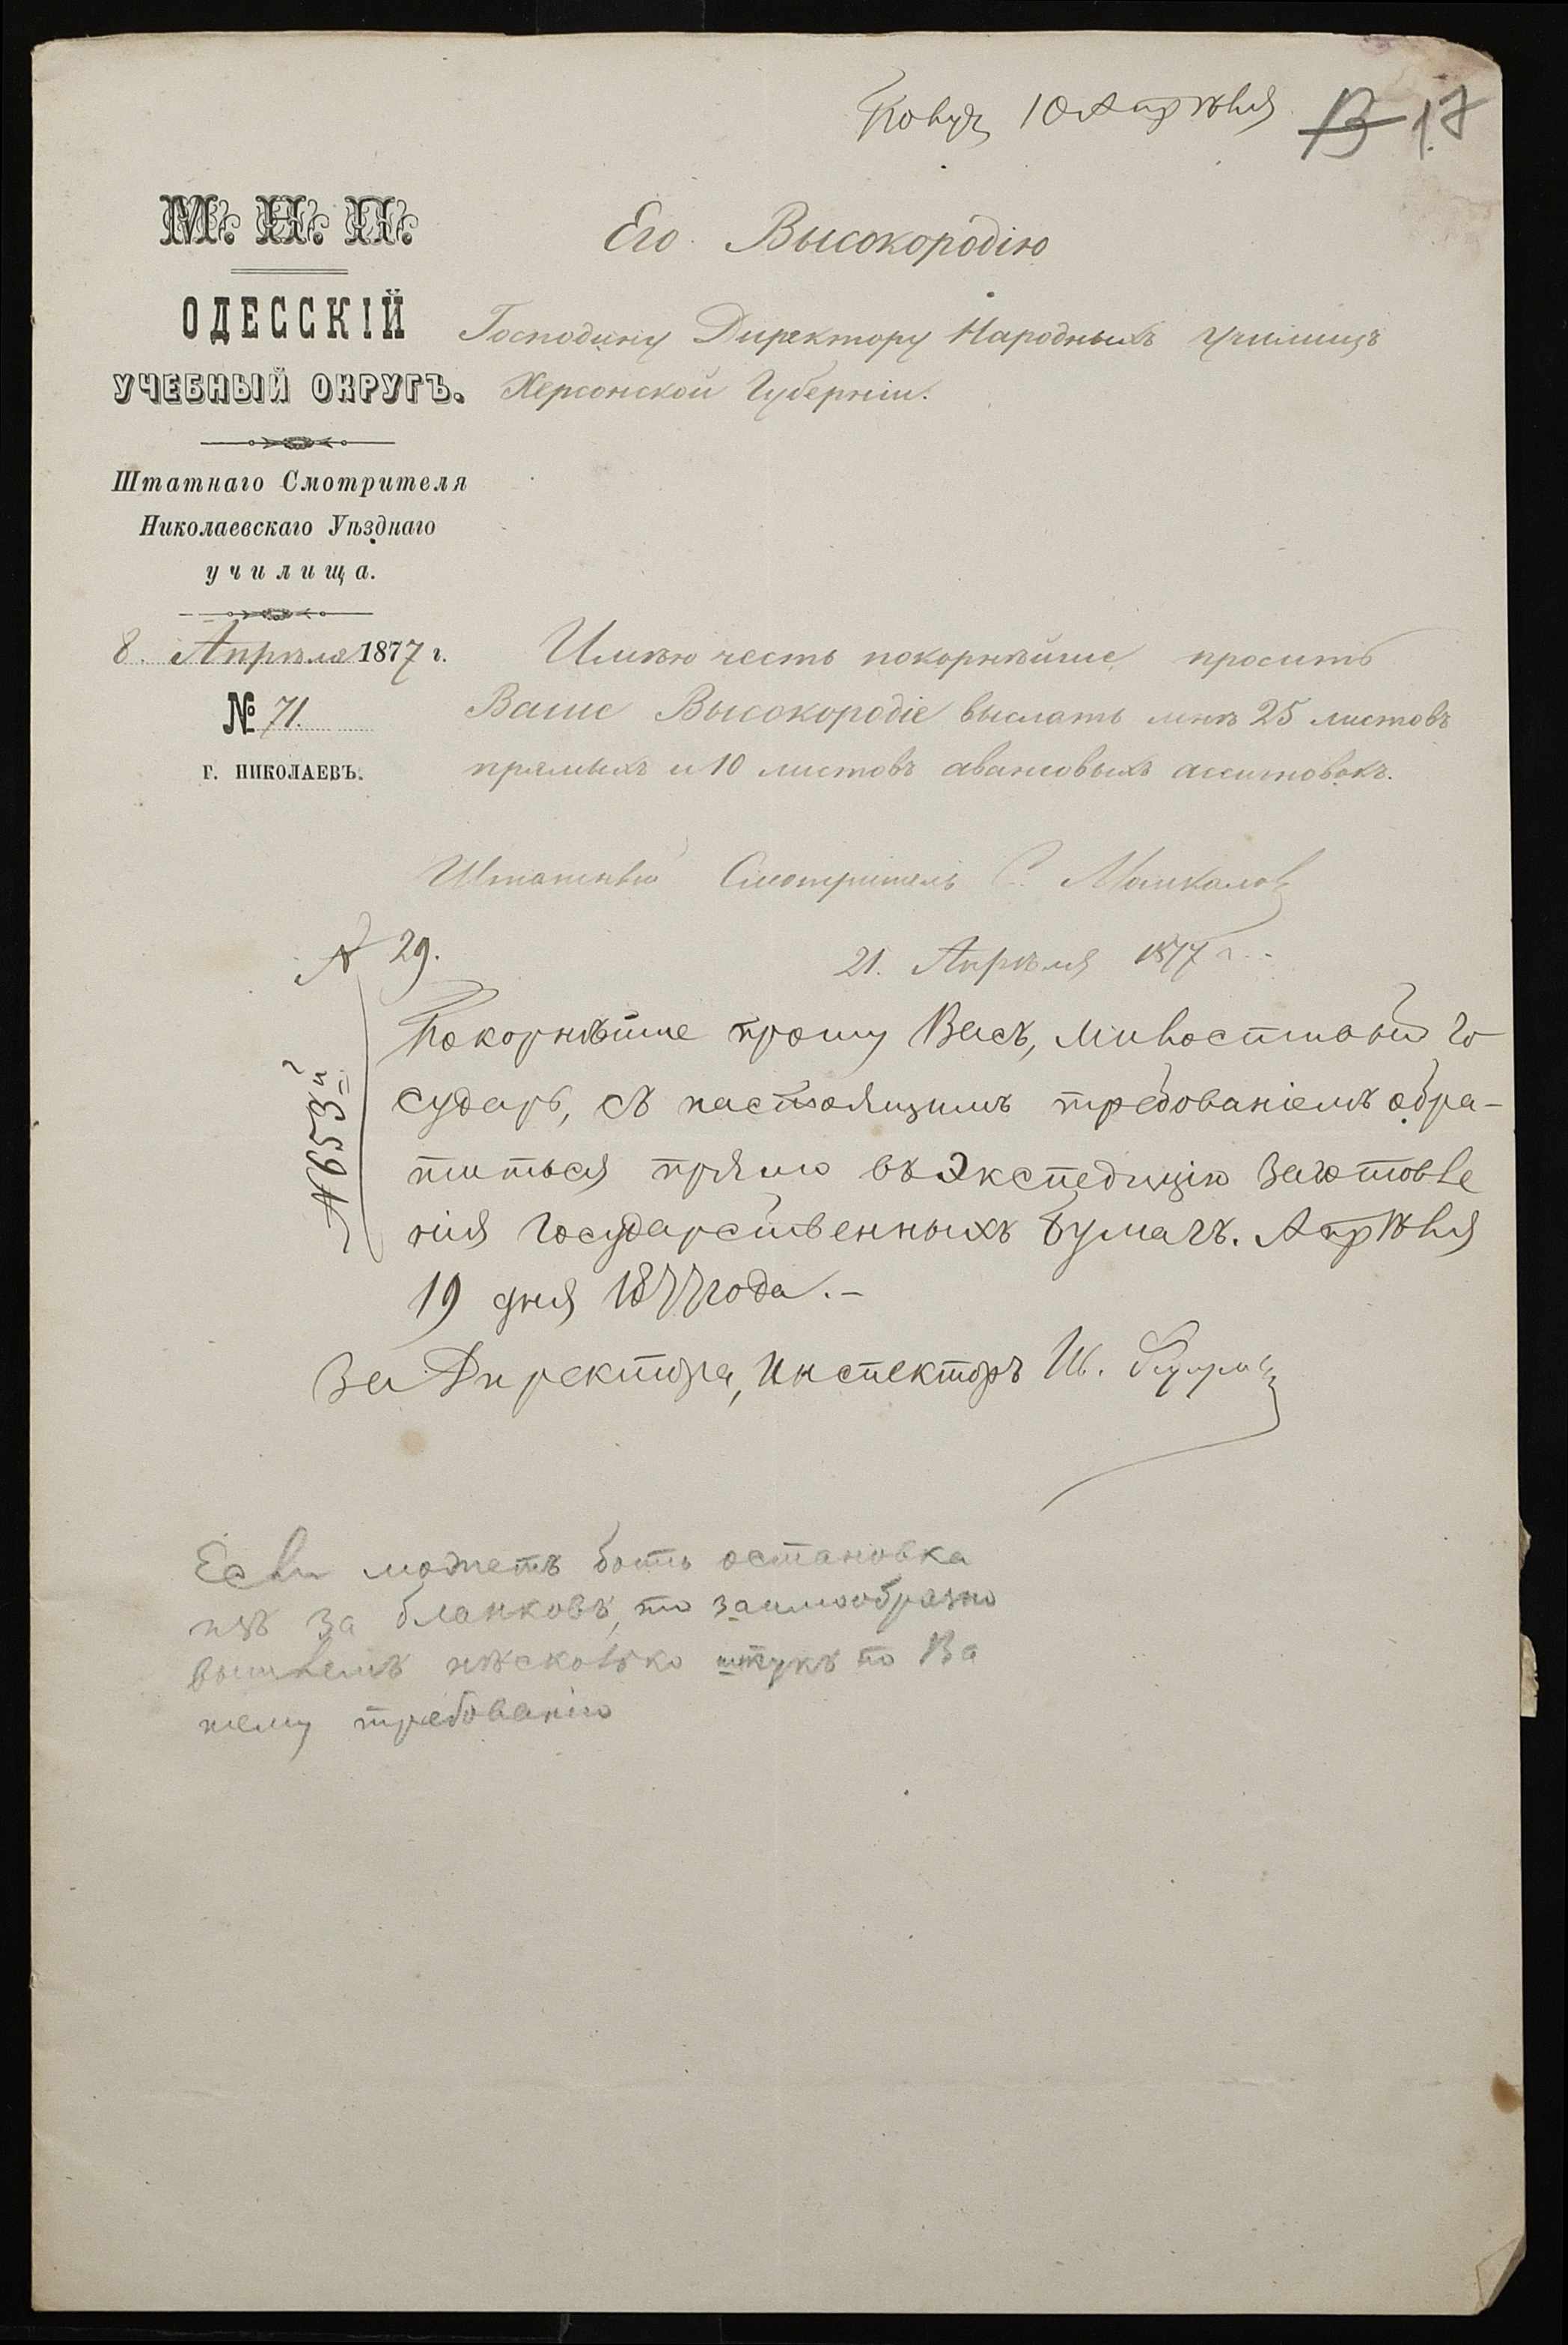 10 Апрѣля
13 17
М. Н. П.
ОДЕССКІЙ
УЧЕБНЫЙ ОКРУГЪ.
Штатнаго Смотрителя
Николаевскаго Уѣзднаго
училища.
8. Апрѣля 1877 г.
№ 71.
г. НИКОЛАЕВЪ.
Его Высокородію
Господину Директору Народныхъ Училищъ
Херсонской Губерніи.
Имѣю честь покорнѣйше просить
Ваше Высокородіе выслать мнѣ 25 листовъ
прямыхъ и 10 листовъ авансовыхъ ассигновокъ.
Штатный Смотритель С.
№ 29.
21. Апрѣля 1877 г.
№ 653й
Покорнѣйше прошу Васъ, Милостивый Го
сударь, съ настоящимъ требованіемъ обра-
титься прямо въ Экспедицію Заготовле
нія Государственныхъ Бумагъ. Апрѣля
19 дня 1877 года.-
За Директора, Инспекторъ
Если можетъ быть остановка
изъ за бланковъ, то заимообразно
вышлемъ нѣсколько штукъ по Ва
шему требованію